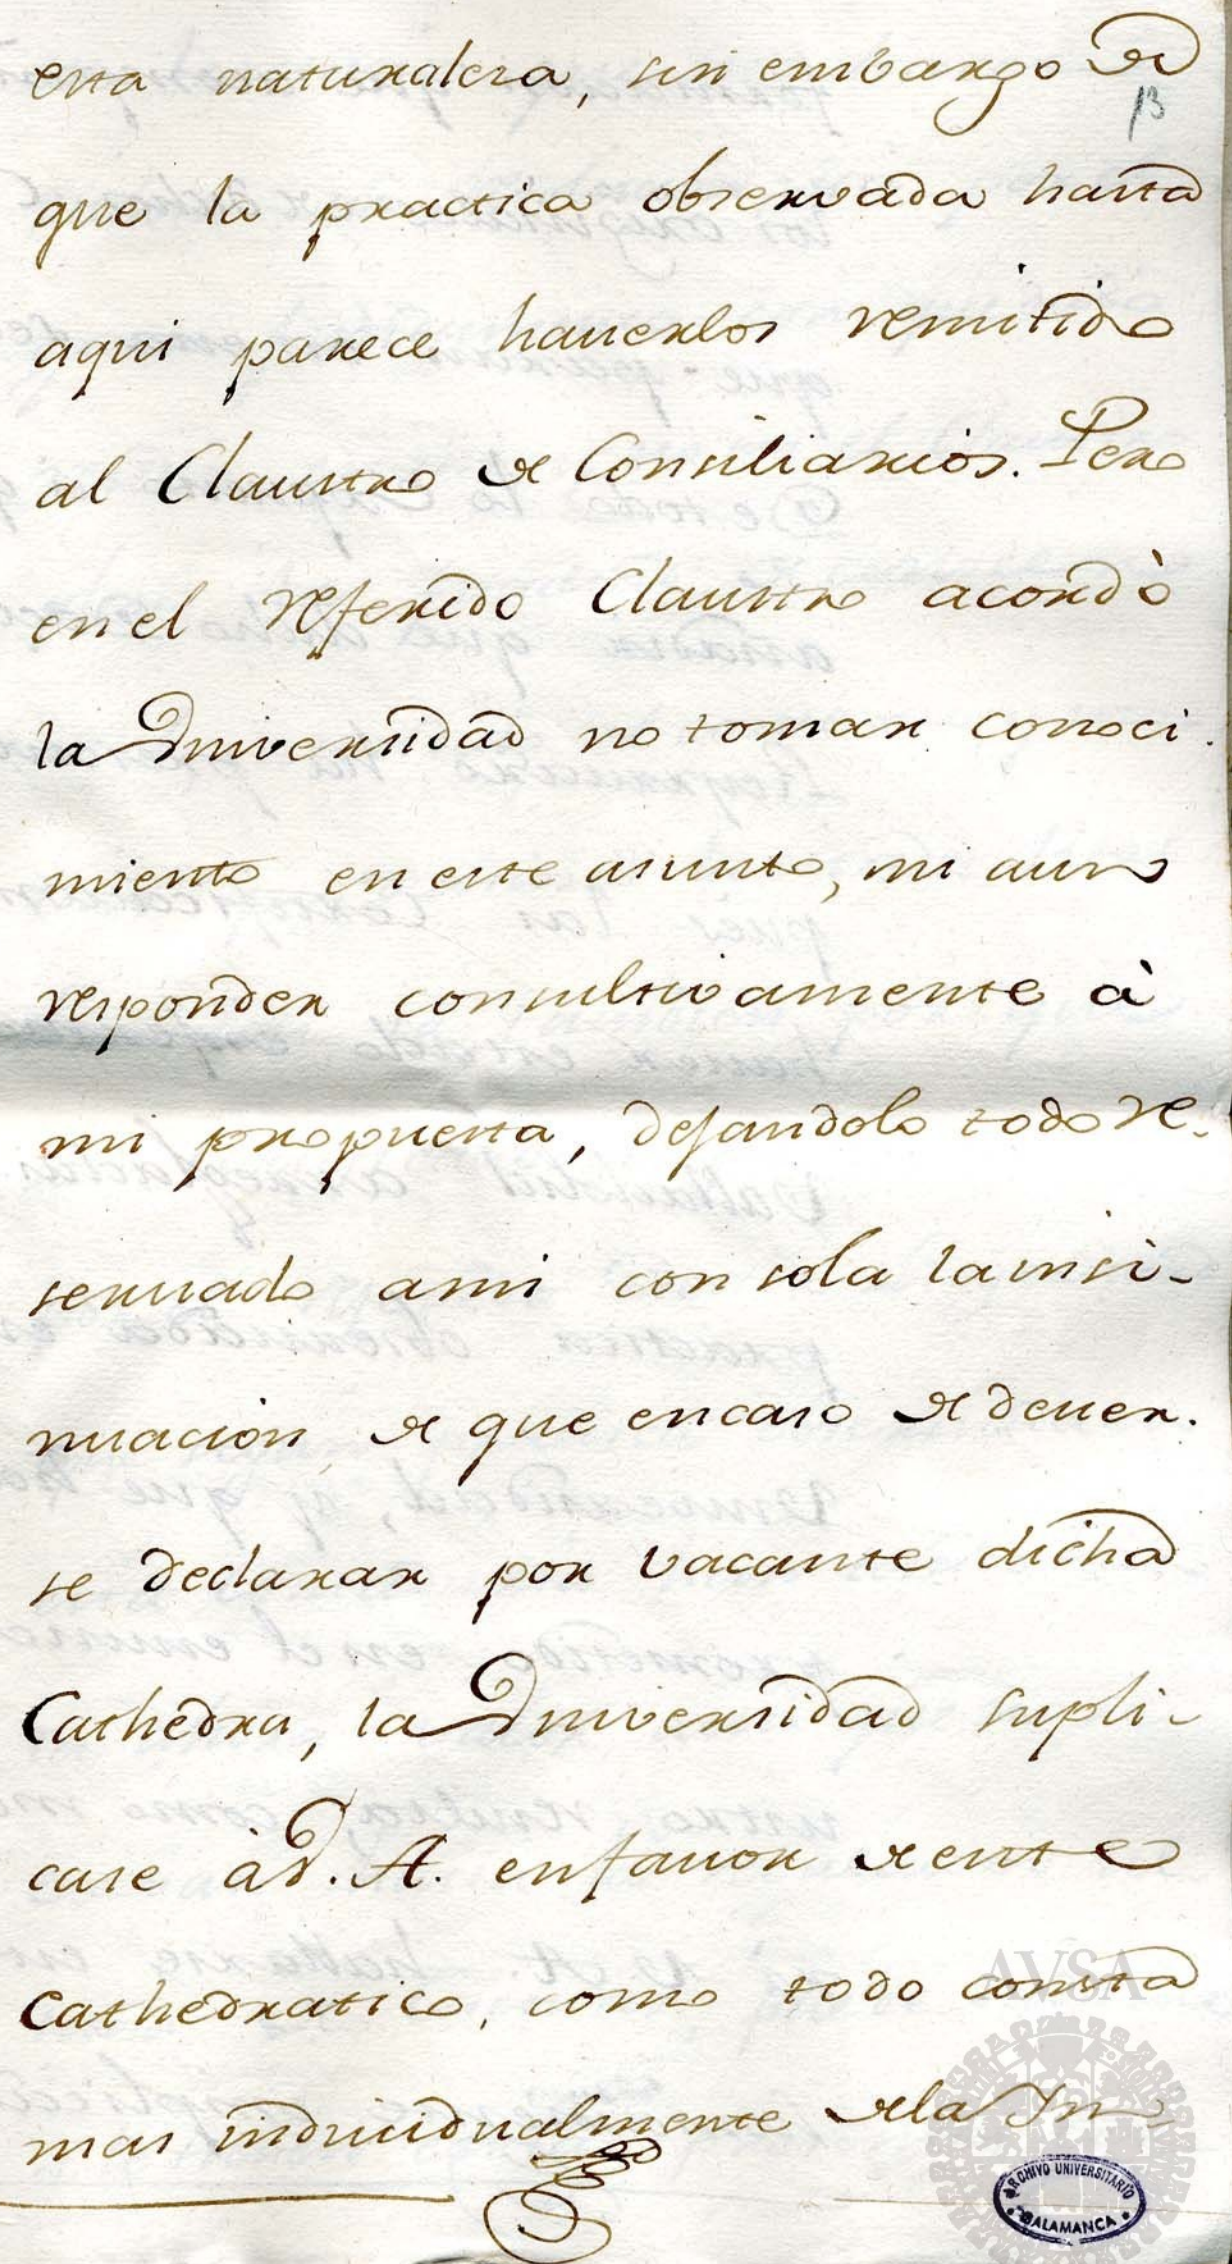 esta naturaleza, sin embargo de
13
que la practica observada hasta
aqui parece hauerlos remitido
al Claustro de Consiliarios. Pero
en el referido Claustro acordò
la Universidad no tomar conoci-
miento en este asunto, ni aun
responder consultivamente à
mi propuesta, dejandolo todo re-
seruado a mi con sola la insi-
nuacion de que en caso de deuer-
se declarar por vacante dicha
Cathedra, la Universidad supli-
case à V. A. en fauor de este
Cathedratico, como todo consta
mas indiuidualmente de la In
AVSA
ARCHIVO UNIVERSITARIO
SALAMANCA